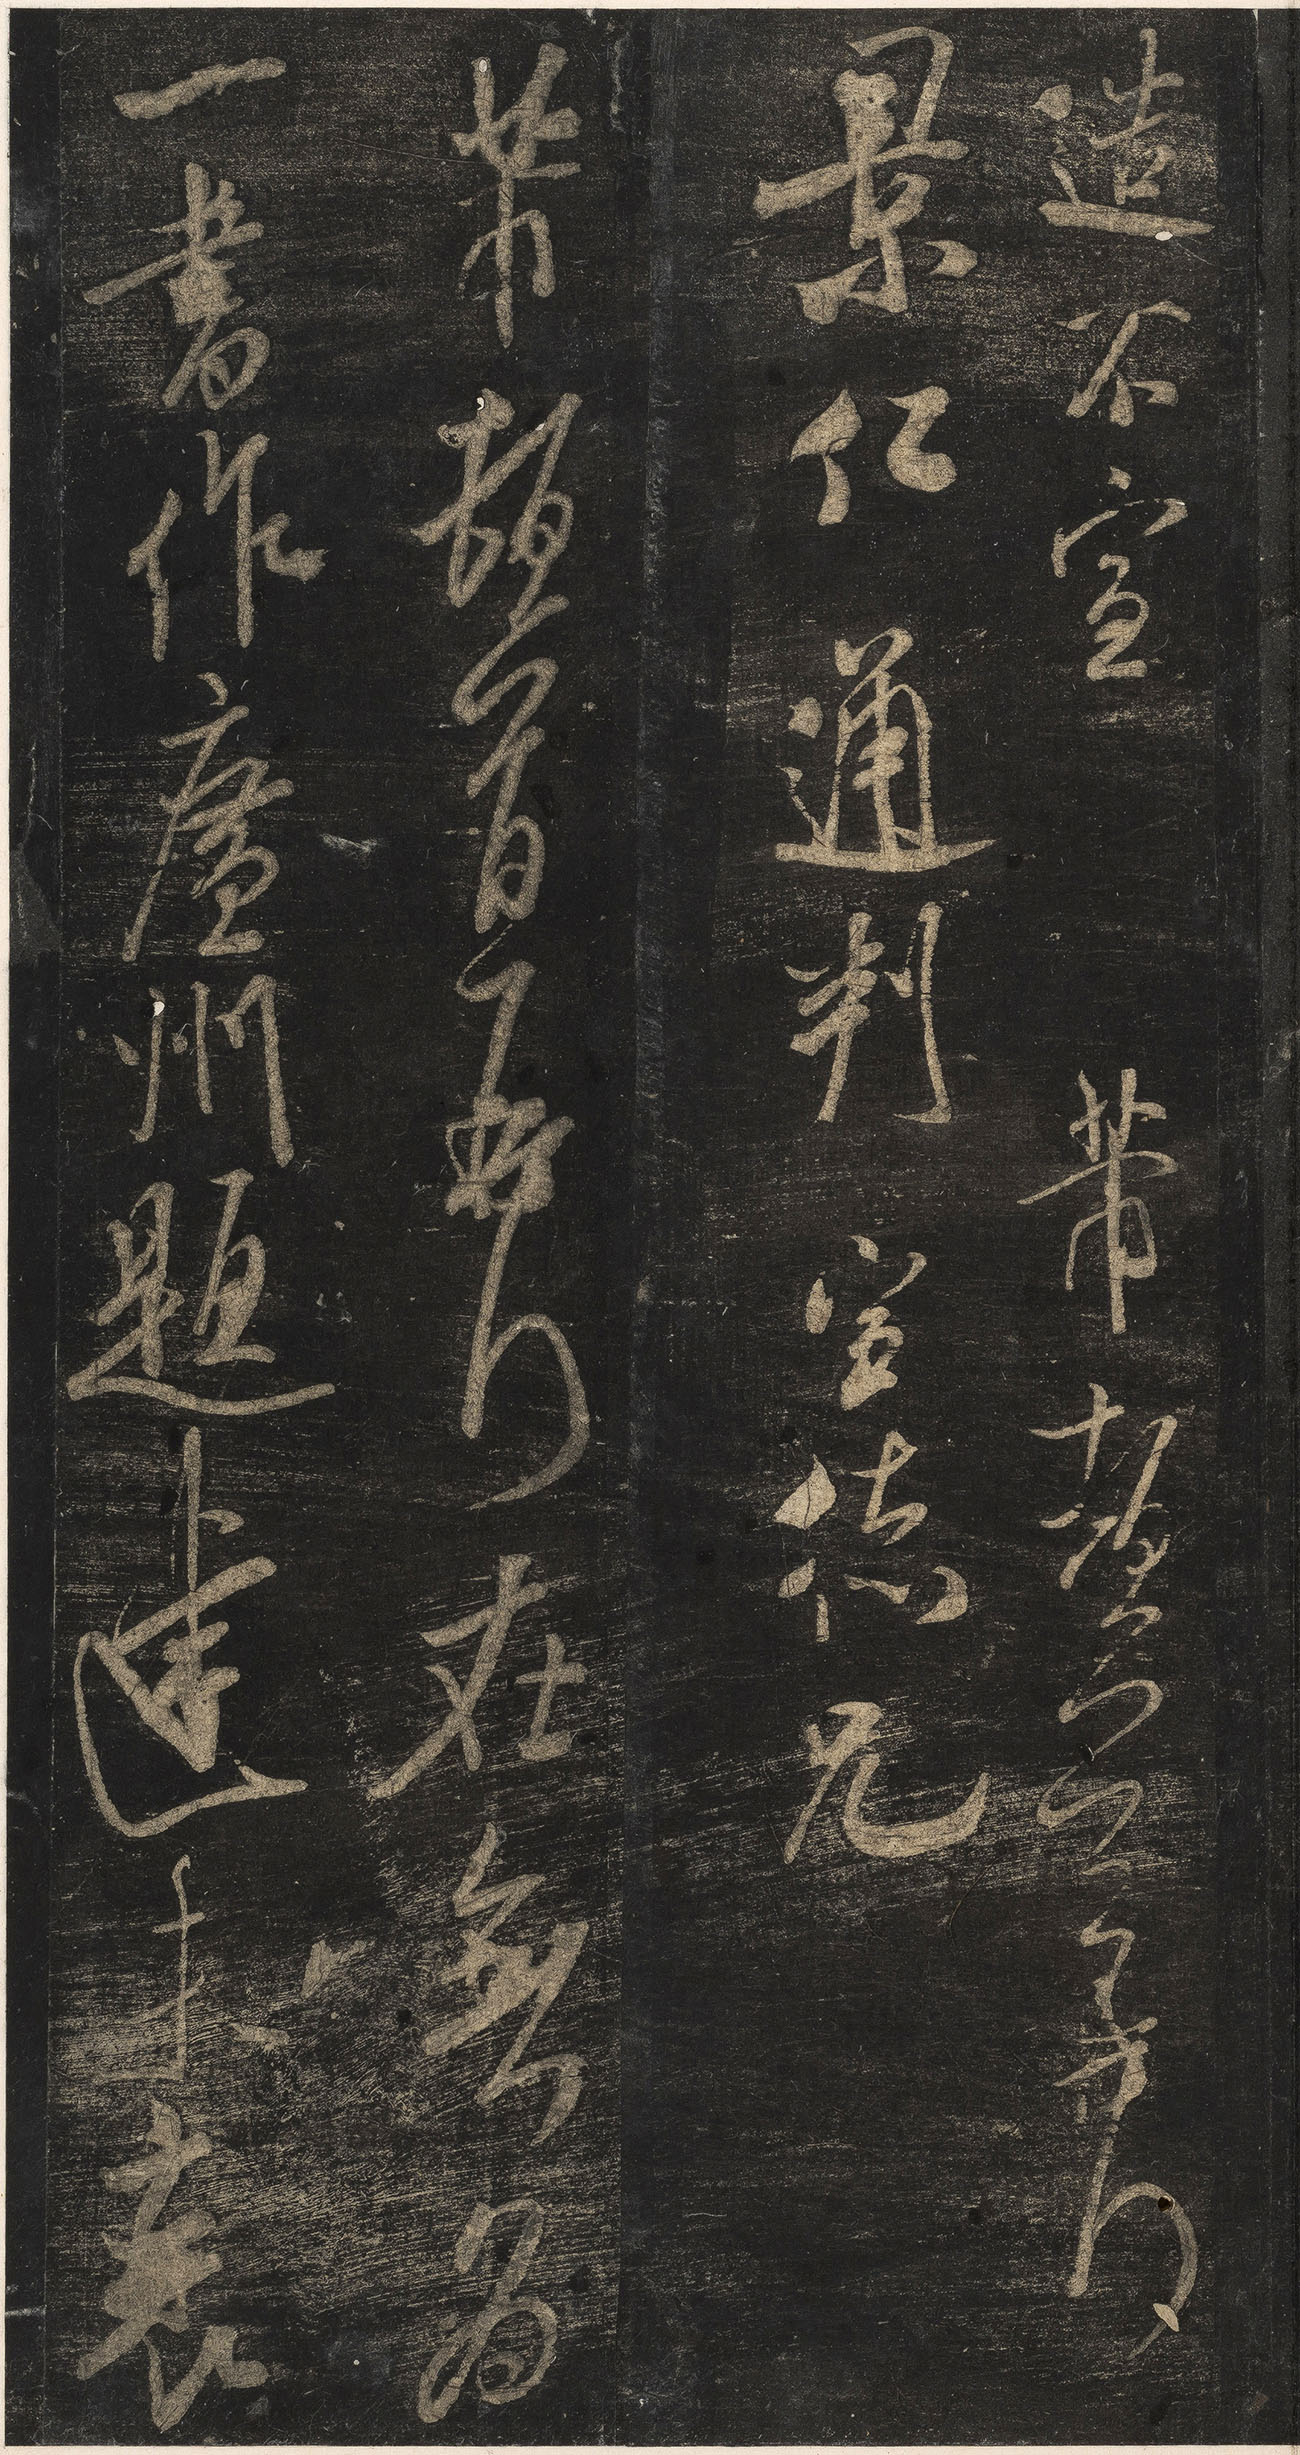 造不宣 芾頓首再拜
景仁通判宣德兄
芾頓首再拜在無為
一書作廬州題達袁